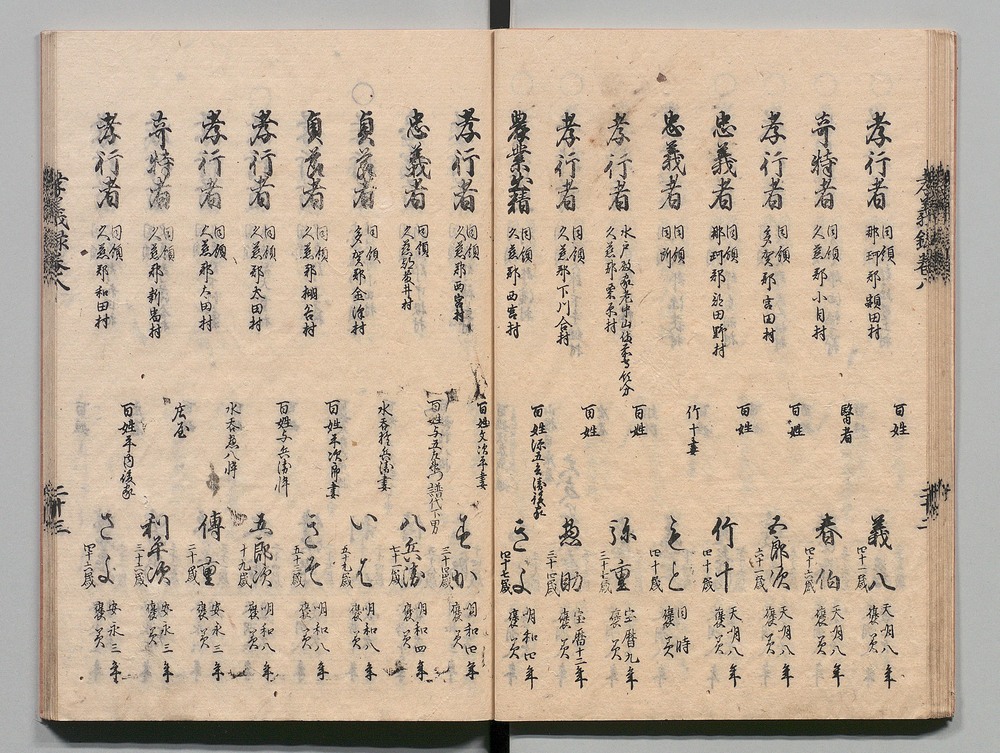 孝行者 同領 那珂郡額田村 百姓 義八 四十一歳 天明八年 褒美
奇特者 同領 久慈郡小目村 醫者 春伯 四十六歳 天明八年 褒美
孝行者 同領 多賀郡 田村 百姓 五郎次 六十一歳 天明八年 褒美
忠義者 同領 那珂郡 田野村 百姓 竹十 四十歳 天明八年 褒美
忠義者 同領 同所 竹十妻 もと 四十歳 同時 褒美
孝行者 水戸殿家老中山備前守領分 久慈郡栗原村 百姓 弥重 三十七歳 宝暦九年 褒美
孝行者 同領 久慈郡下川合村 百姓 惣助 三十四歳 宝暦十二年 褒美
農業出精 同領 久慈郡西宮村 百姓源五兵衛後家 きよ 四十七歳 明和四年 褒美
孝行者 同領 久慈郡西宮村 百姓文次平妻 三十四歳 明和四年 褒美
忠義者 同領 久慈郡 井村 百姓与五左衛門譜代下男 八兵衛 七十一歳 明和四年 褒美
○貞節者 同領 多賀郡金沢村 水呑 兵衛妻 五十九歳 明和八年 褒美
貞節者 同領 久慈郡棚谷村 百姓 次郎妻 きそ 五十三歳 明和八年 褒美
孝行者 同領 久慈郡太田村 百姓与兵衛忰 五郎次 十九歳 明和八年 褒美
孝行者 同領 久慈郡太田村 水呑 八忰 傳重 三十歳 安永三年 褒美
奇特者 同領 久慈郡新宿村 庄屋 利平次 三十二歳 安永三年 褒美
孝行者 同領 久慈郡和田村 百姓平内後家 さよ 四十六歳 安永三年 褒美
孝義録巻八 二十二
孝義録巻八 二十三